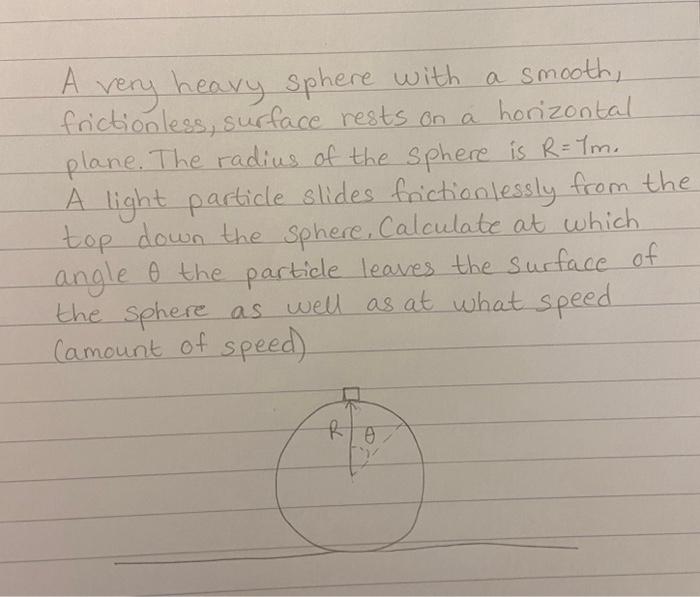 A very heavy sphere with a smooth,
frictionless, surface rests on a horizontal
plane. The radius of the sphere is R=1m.
A light particle slides frictionlessly from the
top down the sphere. Calculate at which
angle θ the particle leaves the surface of
the sphere as well as at what speed
(amount of speed)
R θ